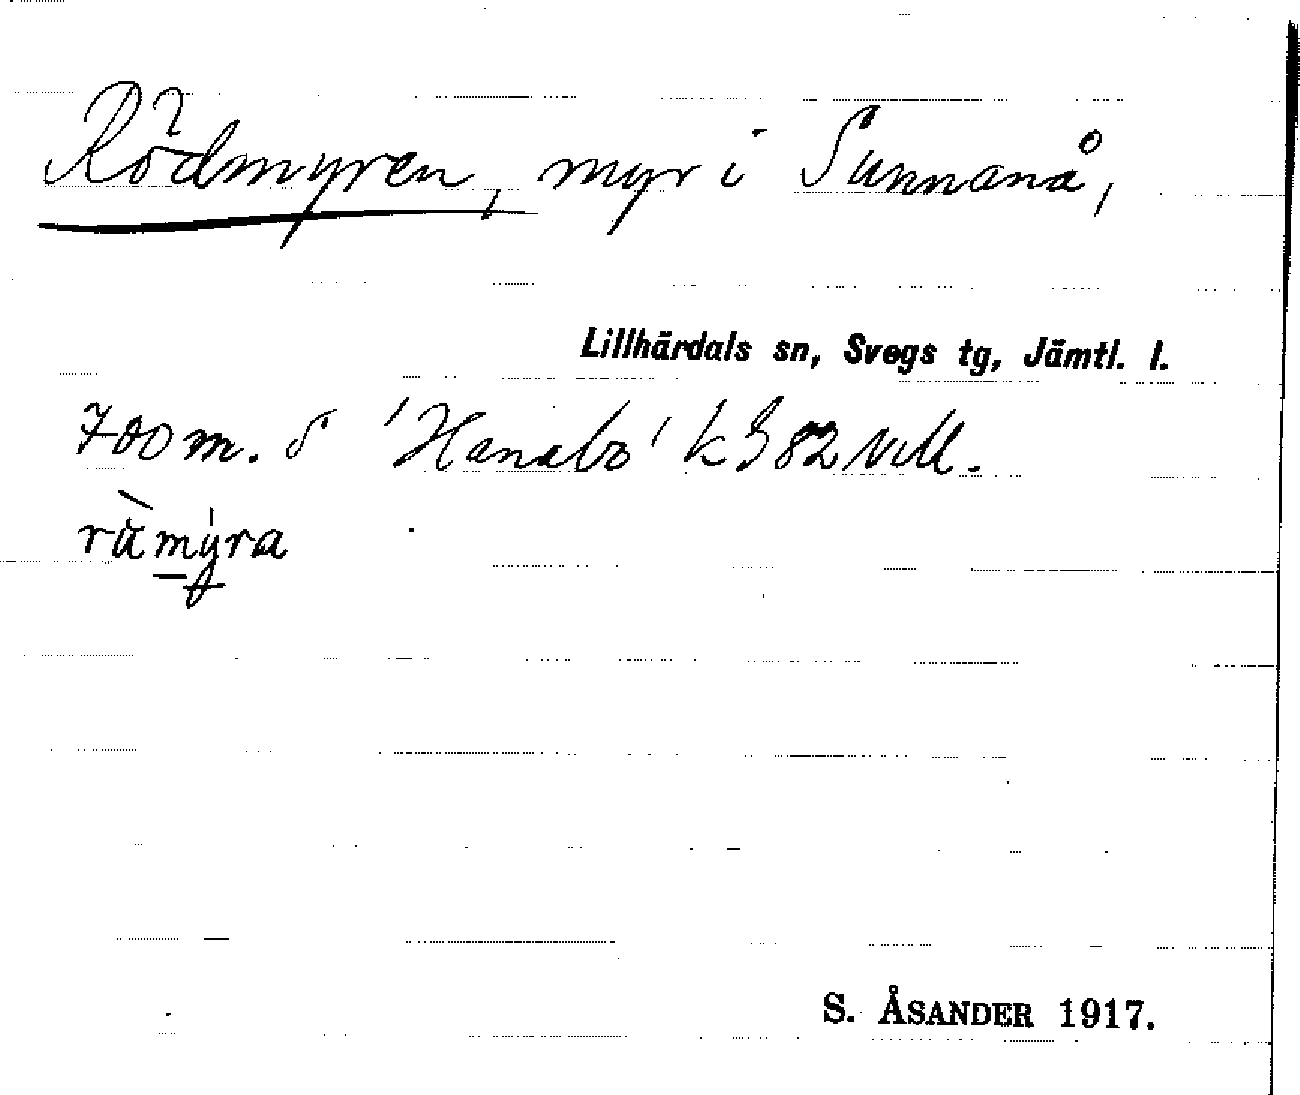 Rödmyren, myr i Sunnanå,
Lillhärdals sn, Svegs tg, Jämtl. l.
700 m. S 'Hanabo' k 382 Vill.
råmyra
S. ÅSANDER 1917.